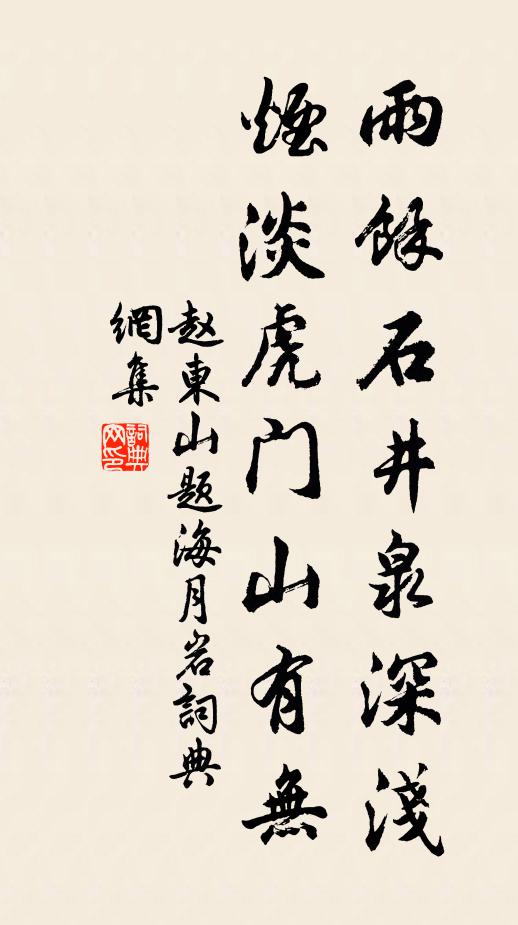 雨餘石井泉深淺
煙淡虎门山有無
赵東山题海月岩詞典
網集
詞典
网印